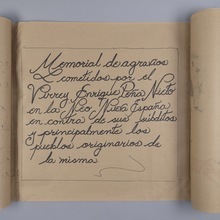 Memorial de agravios
cometidos por el
Virrey Enrique Peña Nieto
en la Neo, Nueva España
en contra de sus súbditos
y principalmente los
pueblos originarios de
la misma